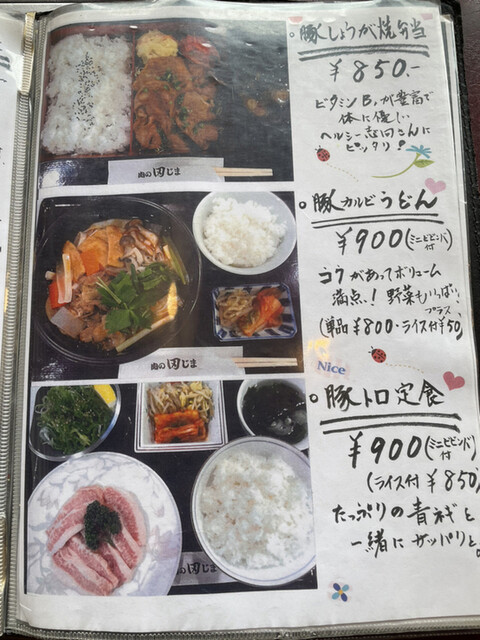 豚しょうが焼弁当
¥850.-
ビタミンB₁が豊富で
体に優しい
ヘルシー志向さんに
ピッタリ!
肉の田じま
豚カルビうどん
¥900(ミニビビンバ付)
コクがあってボリューム
満点!野菜もいっぱい!
プラス
(単品¥800・ライス付¥50)
肉の田じま
Nice
豚トロ定食
¥900(ミニビビンバ付)
(ライス付¥850)
たっぷりの青ネギと
一緒にサッパリと。
の田じま